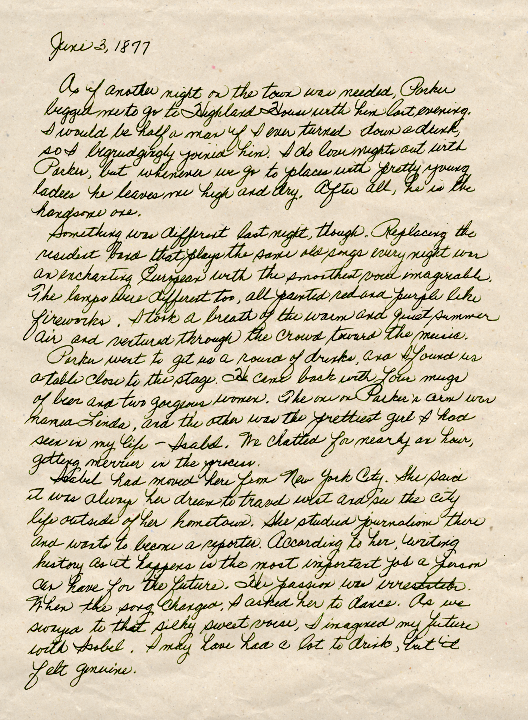 June 3, 1877
As if another night on the town was needed, Parker
begged me to go to Highland House with him last evening.
I would be half a man if I ever turned down a drink,
so I begrudgingly joined him. I do love nights out with
Parker, but whenever we go to places with pretty young
ladies he leaves me high and dry. After all, he is the
handsome one.
Something was different last night, though. Replacing the
resident band that plays the same old songs every night was
an enchanting European with the smoothest voice imaginable.
The lamps were different too, all painted red and purple like
fireworks. I took a breath of the warm and quiet summer
air and ventured through the crowd toward the music.
Parker went to get us a round of drinks, and I found us
a table close to the stage. He came back with four mugs
of beer and two gorgeous women. The one on Parker's arm was
named Linda, and the other was the prettiest girl I had
seen in my life - Isabel. We chatted for nearly an hour,
getting merrier in the process.
Isabel had moved here from New York City. She said
it was always her dream to travel west and see the city
life outside of her hometown. She studied journalism there
and wants to become a reporter. According to her, writing
history as it happens is the most important job a person
can have for the future. Her passion was irresistible.
When the song changed, I asked her to dance. As we
swayed to that silky sweet voice, I imagined my future
with Isabel. I may have had a lot to drink, but it
felt genuine.